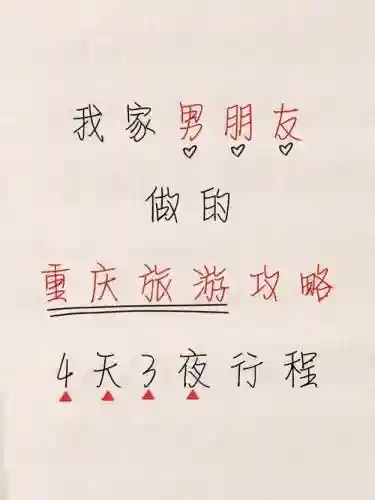 我家男朋友
做的
重庆旅游攻略
4天3夜行程